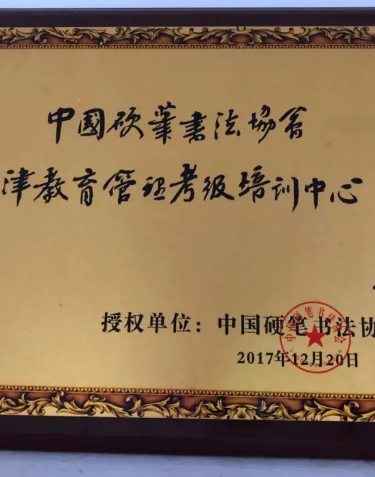 中國硬筆書法協會
津教育管理考级培训中心
授权单位：中国硬笔书法协
2017年12月20日